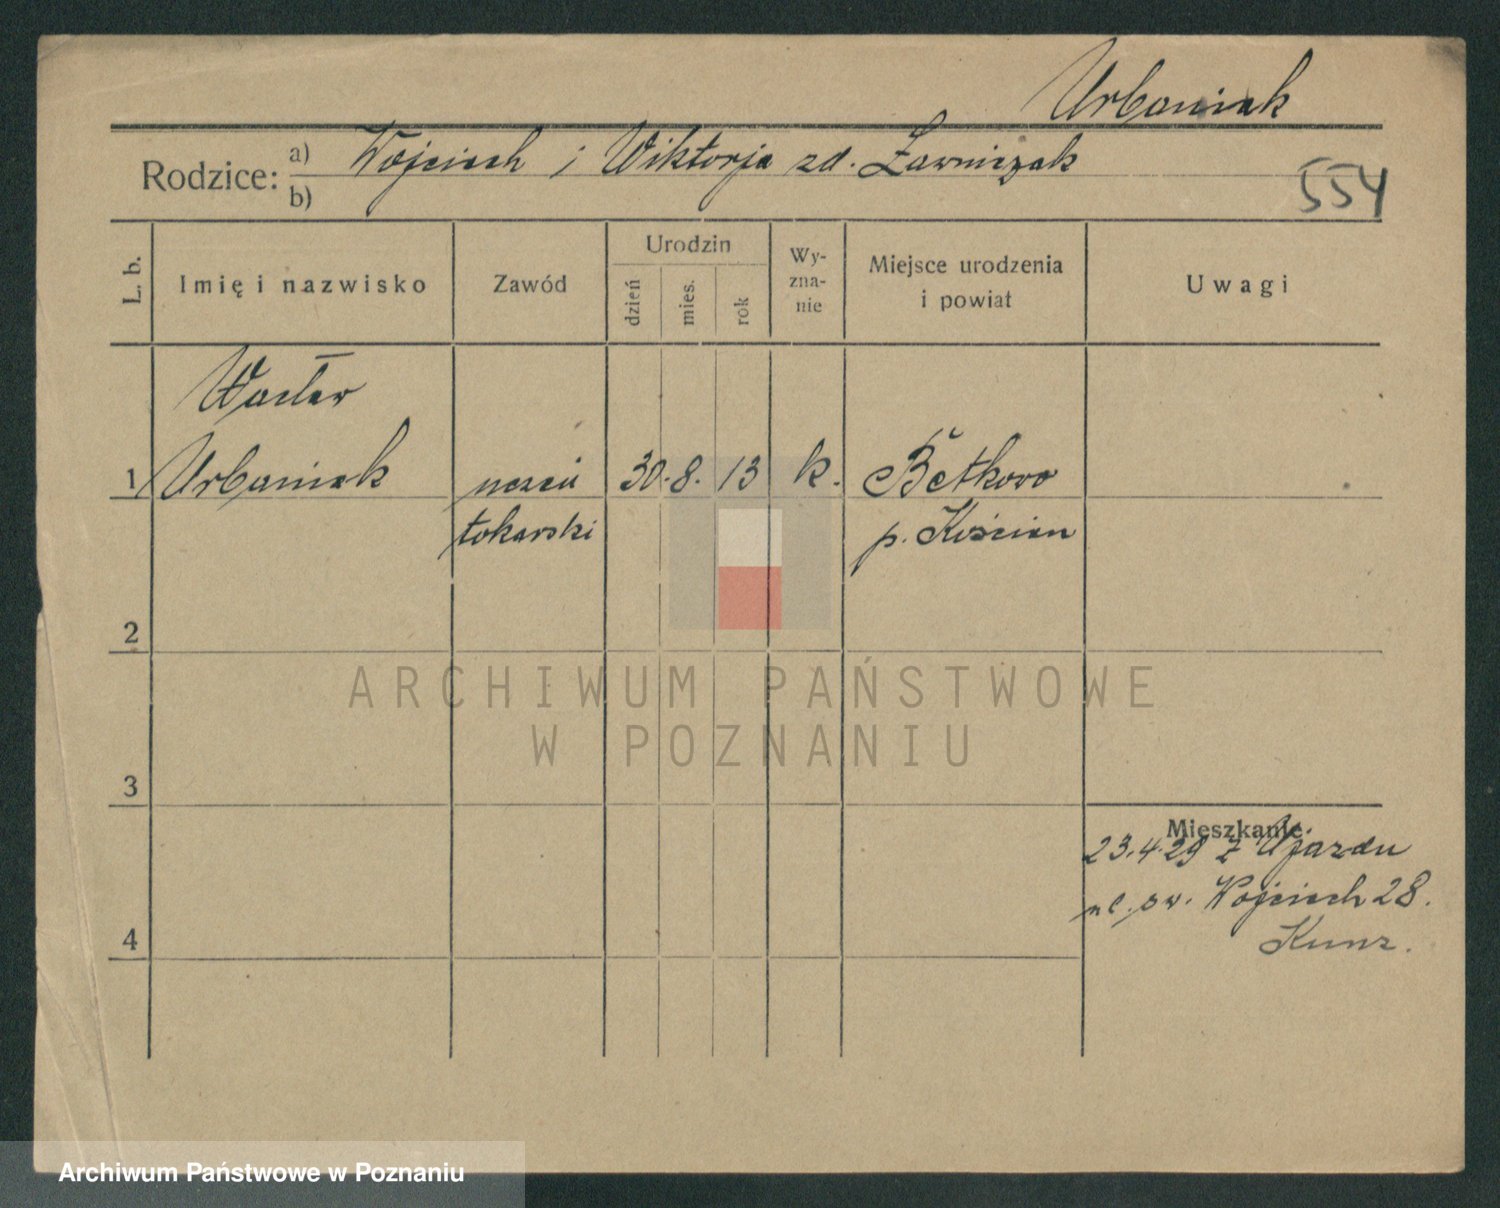 Urbaniak
Rodzice: a) Wojciech i Wiktorja zd. Ławniczak
b)
554
L. b.
Imię i nazwisko
Zawód
Urodzin
dzień
mies.
rok
Wy-
zna-
nie
Miejsce urodzenia
i powiat
Uwagi
Wacław
1 Urbaniak uczeń 30. 8. 13 k. Betkowo
tokarski p. Kościan
2
ARCHIWUM PAŃSTWOWE
W POZNANIU
3
Mieszkanie:
23.4.29 z Ujazdu
ul. św. Wojciech 28.
Kunz.
4
Archiwum Państwowe w Poznaniu